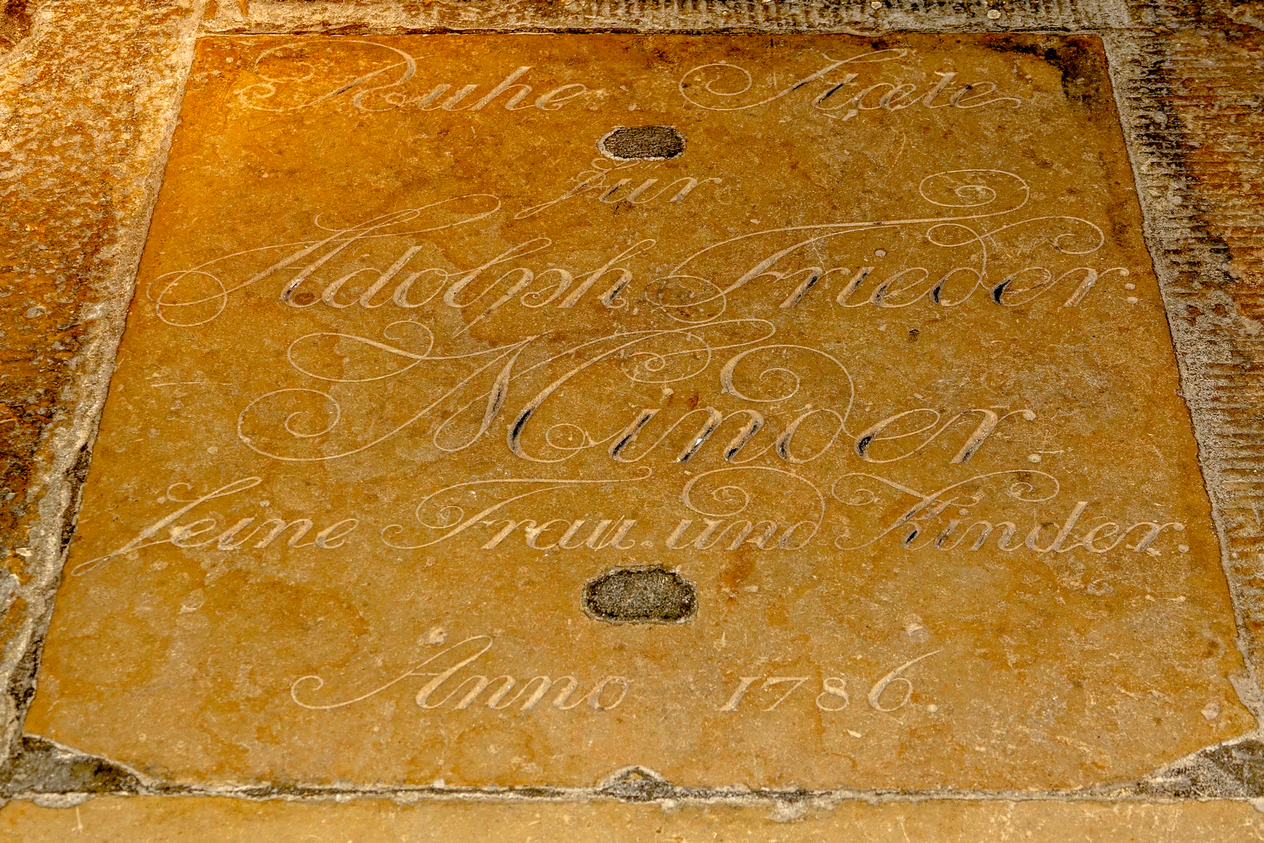 Ruhe Stæte
für
Adolph Frieder:
Minder
seine Frau und Kinder.
Anno 1786